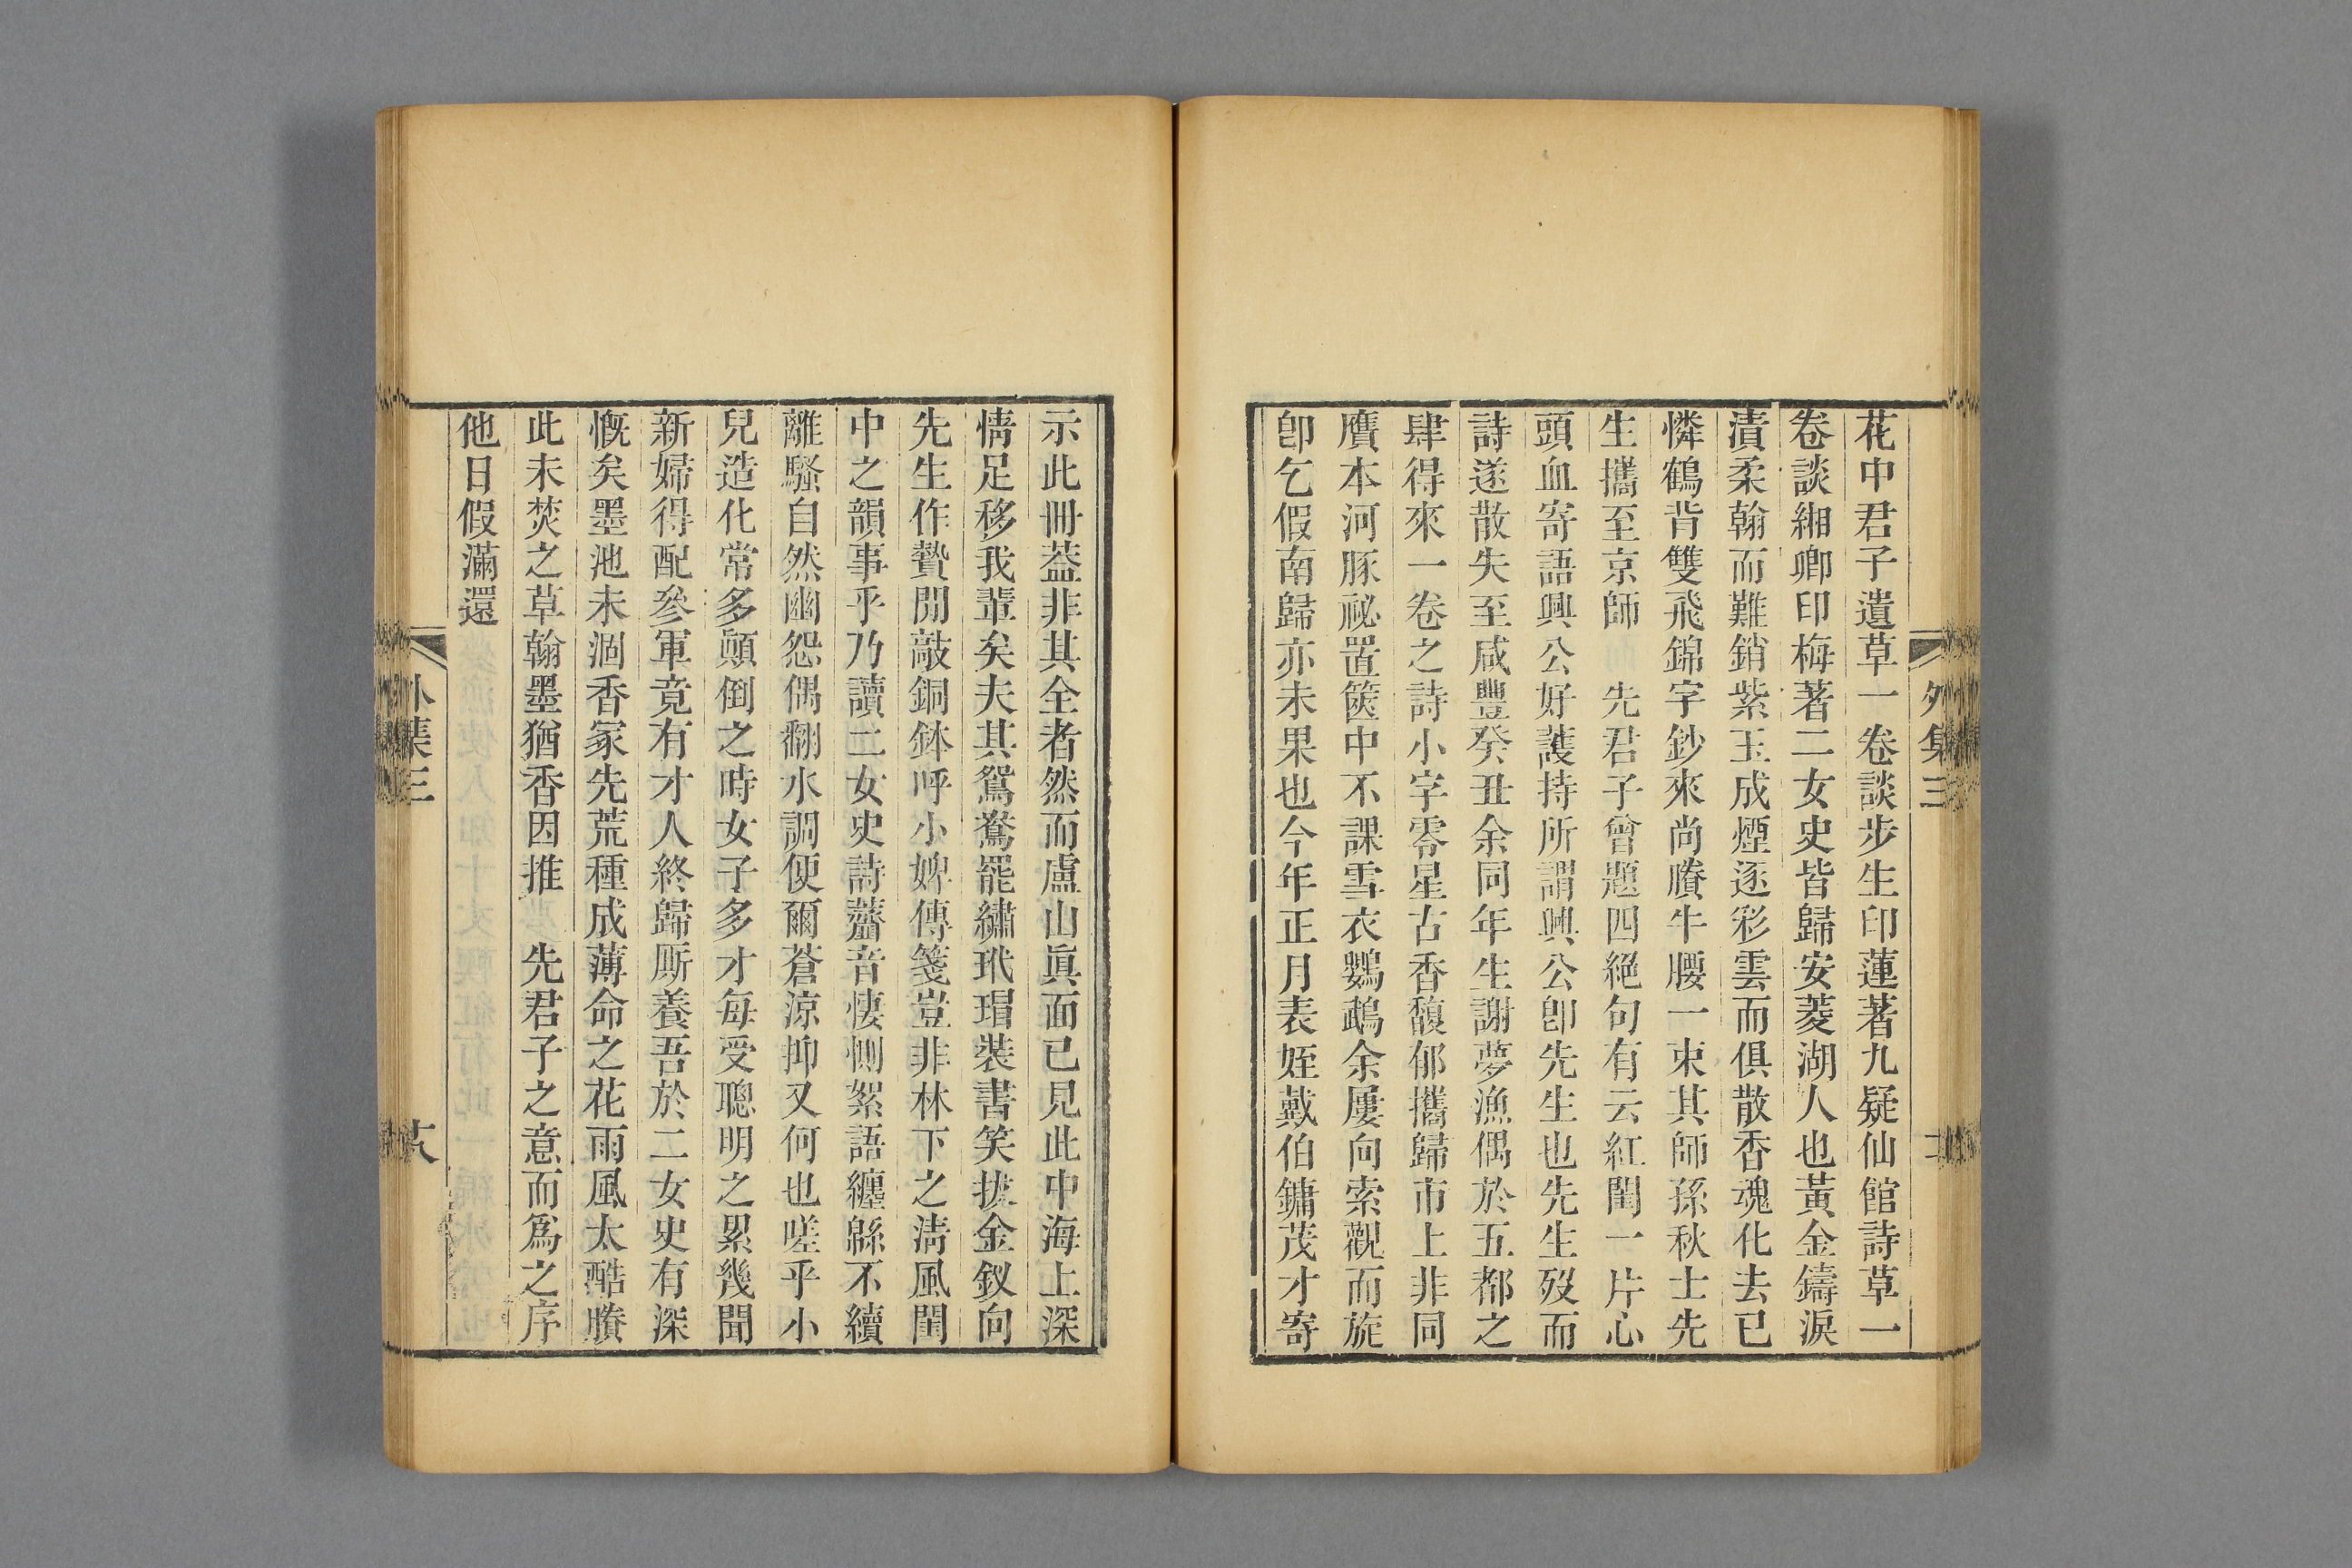 花中君子遺草一卷談步生印蓮著九疑仙館詩草一
卷談緗卿印梅著二女史皆歸安菱湖人也黃金鑄淚
漬柔翰而難銷紫玉成煙逐彩雲而俱散香魂化去已
憐鶴背雙飛錦字鈔來尚賸牛腰一束其師孫秋士先
生攜至京師 先君子曾題四絕句有云紅閨一片心
頭血寄語興公好護持所謂興公卽先生也先生歿而
詩遂散失至咸豐癸丑余同年生謝夢漁偶於五都之
肆得來一卷之詩小字零星古香馥郁攜歸市上非同
贗本河豚祕置篋中不課雪衣鸚鵡余屢向索觀而旋
卽乞假南歸亦未果也今年正月表姪戴伯鏞茂才寄
示此冊葢非其全者然而盧山眞面已見此中海上深
情足移我輩矣夫其鴛鴦罷繡玳瑁裝書笑拔金釵向
先生作贄閒敲銅鉢呼小婢傳箋豈非林下之淸風閨
中之韻事乎乃讀二女史詩虀音悽惻絮語纏緜不續
離騷自然幽怨偶翻水調便爾蒼涼抑又何也嗟乎小
兒造化常多顚倒之時女子多才每受聰明之累幾聞
新婦得配參軍竟有才人終歸厮養吾於二女史有深
慨矣墨池未涸香冢先荒種成薄命之花雨風太酷賸
此未焚之草翰墨猶香因推 先君子之意而爲之序
他日假滿還
外集三
外集三